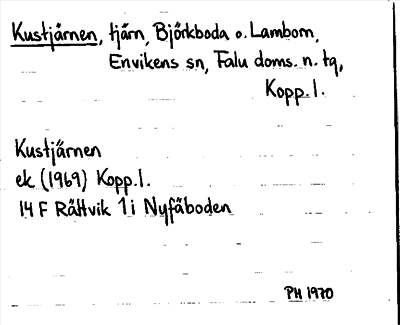 Kustjärnen, tjärn, Björkboda o. Lamborn,
Envikens sn, Falu doms. n. tg,
Kopp. l.
Kustjärnen
ek (1969) Kopp. l.
14 F Rättvik 1 i Nyfäboden
PH 1970